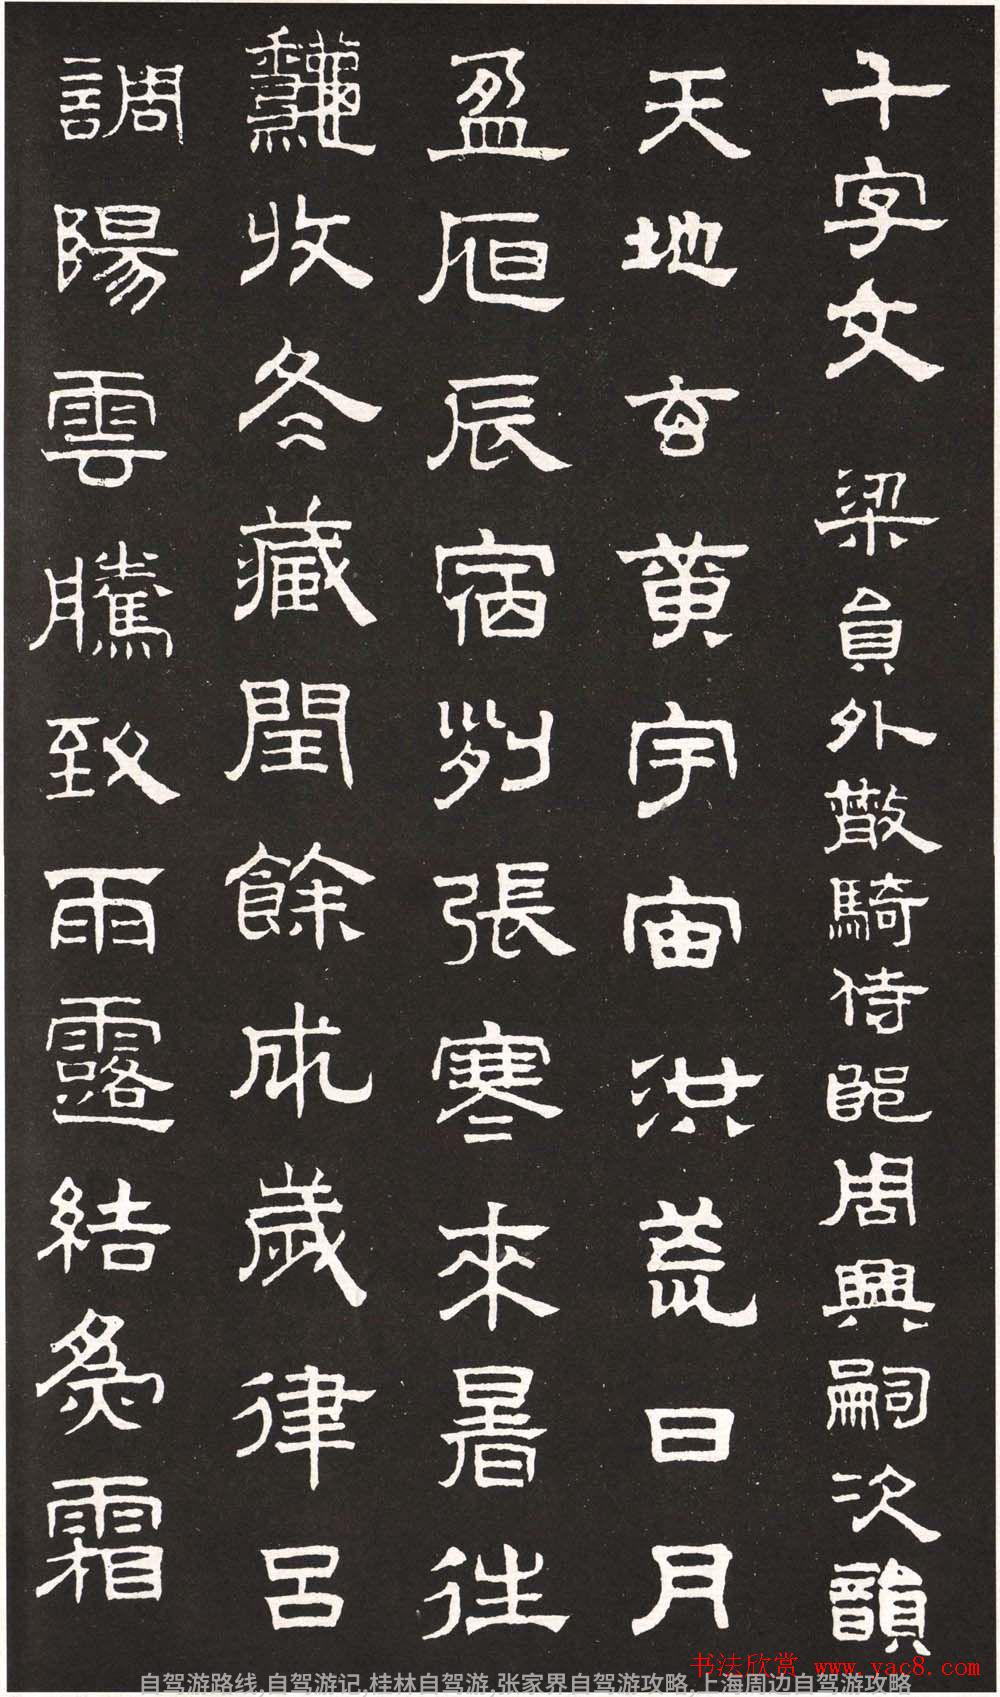 千字文 梁員外散騎侍郎周興嗣次韻
天地玄黃宇宙洪荒日月
盈昃辰宿列張寒來暑往
龝收冬藏閏餘成歲律呂
調陽雲騰致雨露結為霜
书法欣赏 www.yac8.com
自驾游路线,自驾游记,桂林自驾游,张家界自驾游攻略,上海周边自驾游攻略